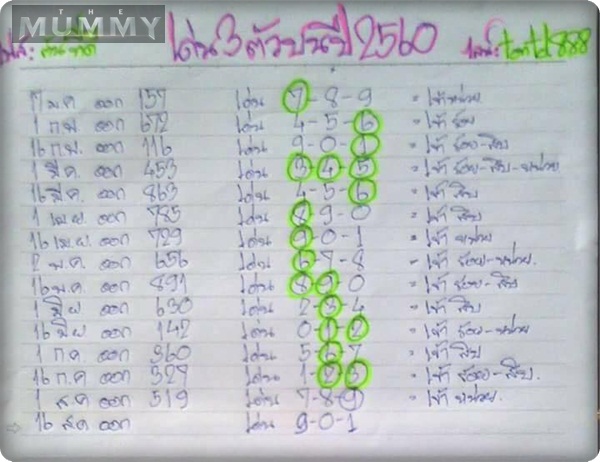 THE
MUMMY
เด่น 3 ตัวบนปี 2560
17 ม.ค. ออก 157 เด่น 7-8-9 = เข้าหน่วย
1 ก.พ. ออก 672 เด่น 4-5-6 = เข้า ร้อย
16 ก.พ. ออก 116 เด่น 9-0-1 = เข้า ร้อย-สิบ
1 มี.ค. ออก 453 เด่น 3-4-5 = เข้า ร้อย-สิบ-หน่วย
16 มี.ค. ออก 863 เด่น 4-5-6 = เข้า สิบ
1 เม.ย. ออก 785 เด่น 8-9-0 = เข้า สิบ
16 เม.ย. ออก 729 เด่น 9-0-1 = เข้า หน่วย
2 พ.ค. ออก 656 เด่น 6-7-8 = เข้า ร้อย-หน่วย.
16 พ.ค. ออก 891 เด่น 8-9-0 = เข้า ร้อย-สิบ
1 มิ.ย ออก 630 เด่น 2-3-4 = เข้า สิบ
16 มิ.ย ออก 142 เด่น 0-1-2 = เข้า ร้อย-หน่วย
1 ก.ค. ออก 960 เด่น 5-6-7 = เข้า สิบ
16 ก.ค ออก 327 เด่น 1-2-3 = เข้า ร้อย-สิบ.
1 ส.ค ออก 519 เด่น 7-8-9 = เข้า หน่วย.
16 ส.ค ออก เด่น 9-0-1